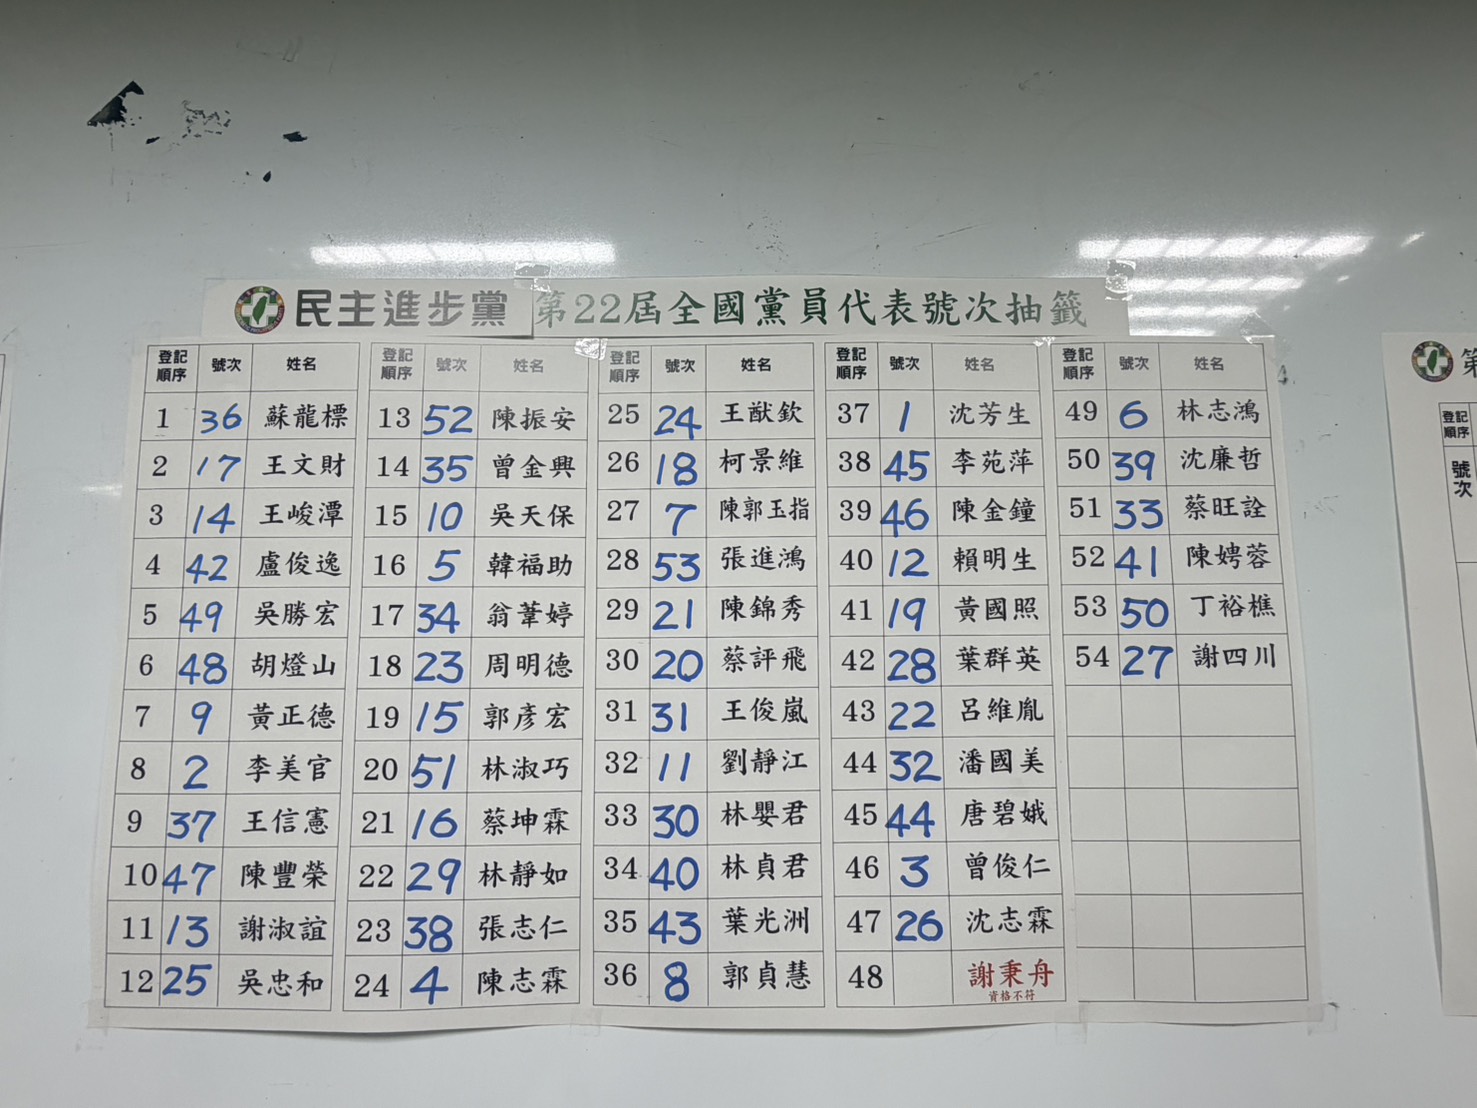 民主進步黨 第22屆全國黨員代表號次抽籤
登記順序 號次 姓名
1 36 蘇龍標
2 17 王文財
3 14 王峻潭
4 42 盧俊逸
5 49 吳勝宏
6 48 胡燈山
7 9 黃正德
8 2 李美官
9 37 王信憲
10 47 陳豐榮
11 13 謝淑誼
12 25 吳忠和
登記順序 號次 姓名
13 52 陳振安
14 35 曾金興
15 10 吳天保
16 5 韓福助
17 34 翁葦婷
18 23 周明德
19 15 郭彥宏
20 51 林淑巧
21 16 蔡坤霖
22 29 林靜如
23 38 張志仁
24 4 陳志霖
登記順序 號次 姓名
25 24 王猷欽
26 18 柯景維
27 7 陳郭玉指
28 53 張進鴻
29 21 陳錦秀
30 20 蔡評飛
31 31 王俊嵐
32 11 劉靜江
33 30 林嬰君
34 40 林貞君
35 43 葉光洲
36 8 郭貞慧
登記順序 號次 姓名
37 1 沈芳生
38 45 李苑萍
39 46 陳金鐘
40 12 賴明生
41 19 黃國照
42 28 葉群英
43 22 呂維胤
44 32 潘國美
45 44 唐碧娥
46 3 曾俊仁
47 26 沈志霖
48 謝秉舟
資格不符
登記順序 號次 姓名
49 6 林志鴻
50 39 沈廉哲
51 33 蔡旺詮
52 41 陳娉蓉
53 50 丁裕樵
54 27 謝四川
第
登記順序
號次